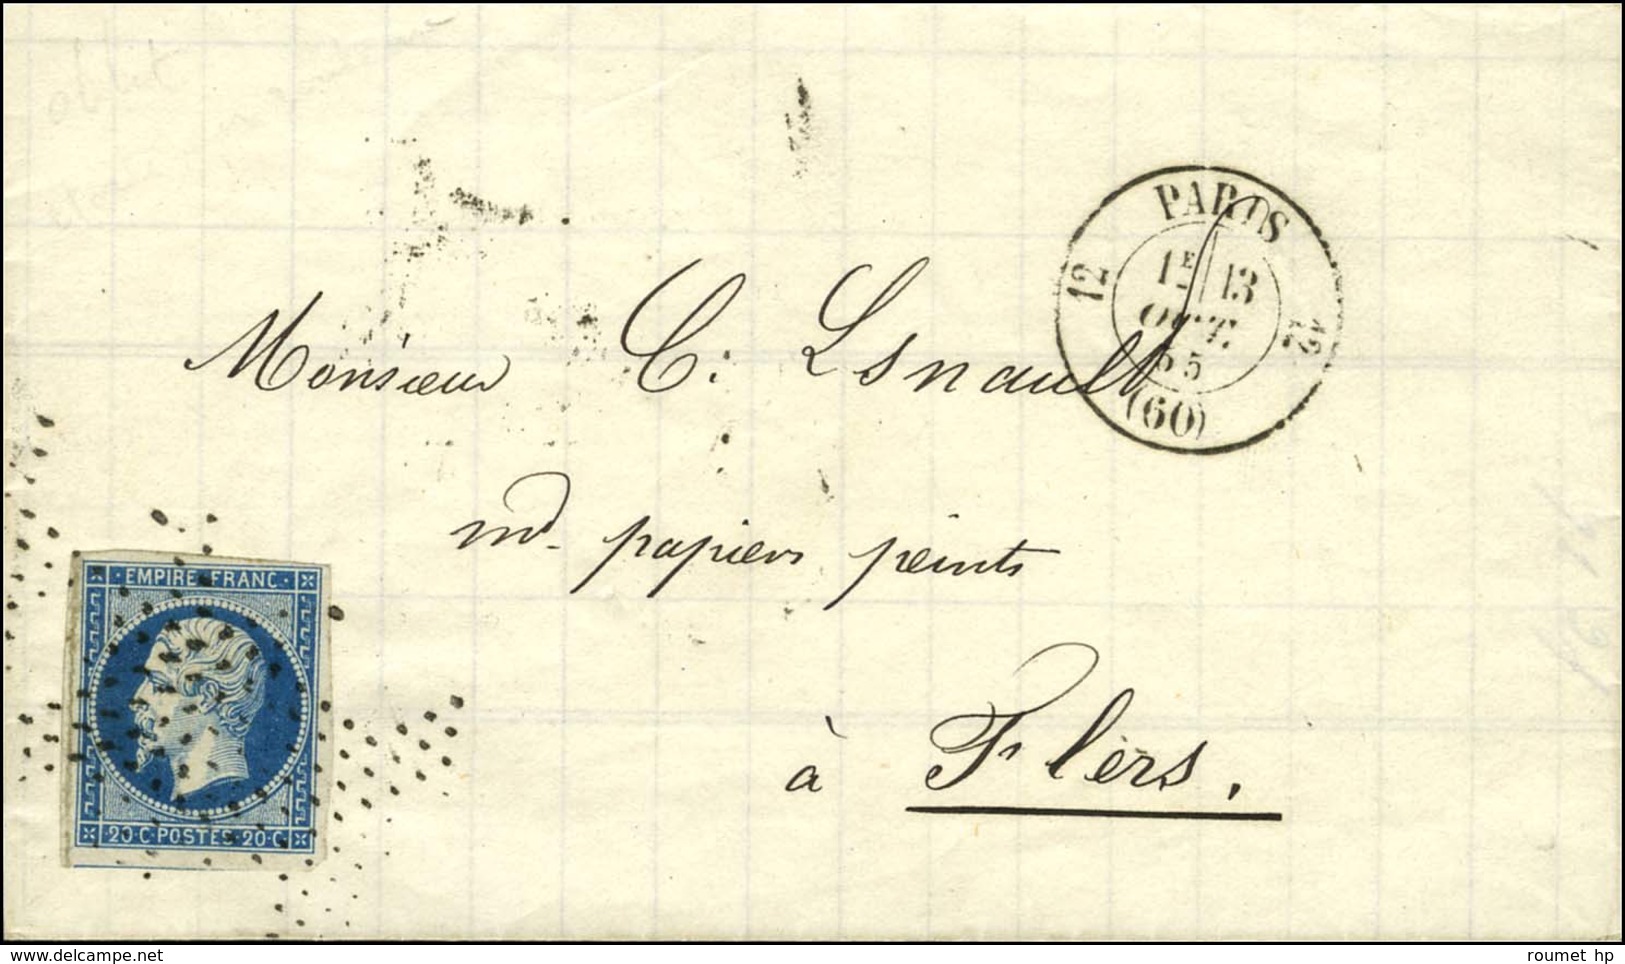 PARIS
1E 13
OCT.
55
12 12
(60)
Monsieur C: Lsnault
md. papiers peints
à Flers.
· EMPIRE FRANC ·
· 20·C·POSTES·20·C·
roumet hp
www.delcampe.net